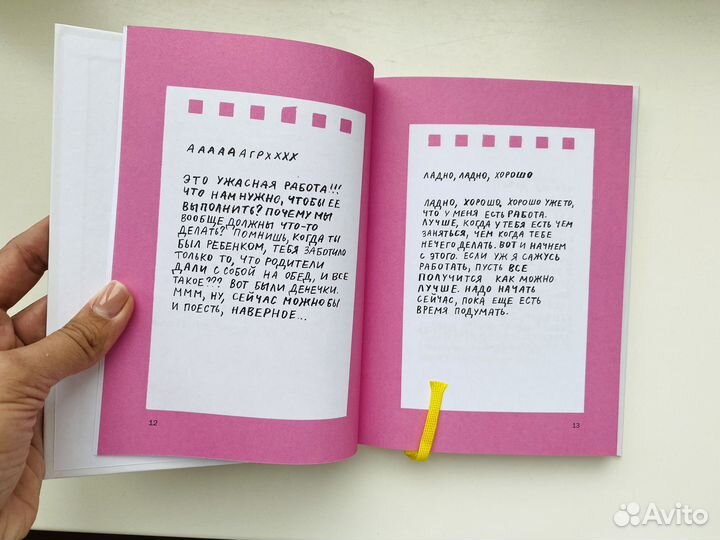 АААААAГРХХХХ
ЭТО УЖАСНАЯ РАБОТА!!!
ЧТО НАМ НУЖНО, ЧТОБЫ ЕЕ
ВЫПОЛНИТЬ? ПОЧЕМУ МЫ
ВООБЩЕ ДОЛЖНЫ ЧТО-ТО
ДЕЛАТЬ? ПОМНИШЬ, КОГДА ТЫ
БЫЛ РЕБЕНКОМ, ТЕБЯ ЗАБОТИЛО
ТОЛЬКО ТО, ЧТО РОДИТЕЛИ
ДАЛИ С СОБОЙ НА ОБЕД, И ВСЕ
ТАКОЕ??? ВОТ БЫЛИ ДЕНЕЧКИ.
МММ, НУ, СЕЙЧАС МОЖНО БЫ
И ПОЕСТЬ, НАВЕРНОЕ...
12
ЛАДНО, ЛАДНО, ХОРОШО
ЛАДНО, ХОРОШО, ХОРОШО УЖЕ ТО,
ЧТО У МЕНЯ ЕСТЬ РАБОТА.
ЛУЧШЕ, КОГДА У ТЕБЯ ЕСТЬ ЧЕМ
ЗАНЯТЬСЯ, ЧЕМ КОГДА ТЕБЕ
НЕЧЕГО ДЕЛАТЬ. ВОТ И НАЧНЕМ
С ЭТОГО. ЕСЛИ УЖ Я САЖУСЬ
РАБОТАТЬ, ПУСТЬ ВСЕ
ПОЛУЧИТСЯ КАК МОЖНО
ЛУЧШЕ. НАДО НАЧАТЬ
СЕЙЧАС, ПОКА ЕЩЕ ЕСТЬ
ВРЕМЯ ПОДУМАТЬ.
13
Avito